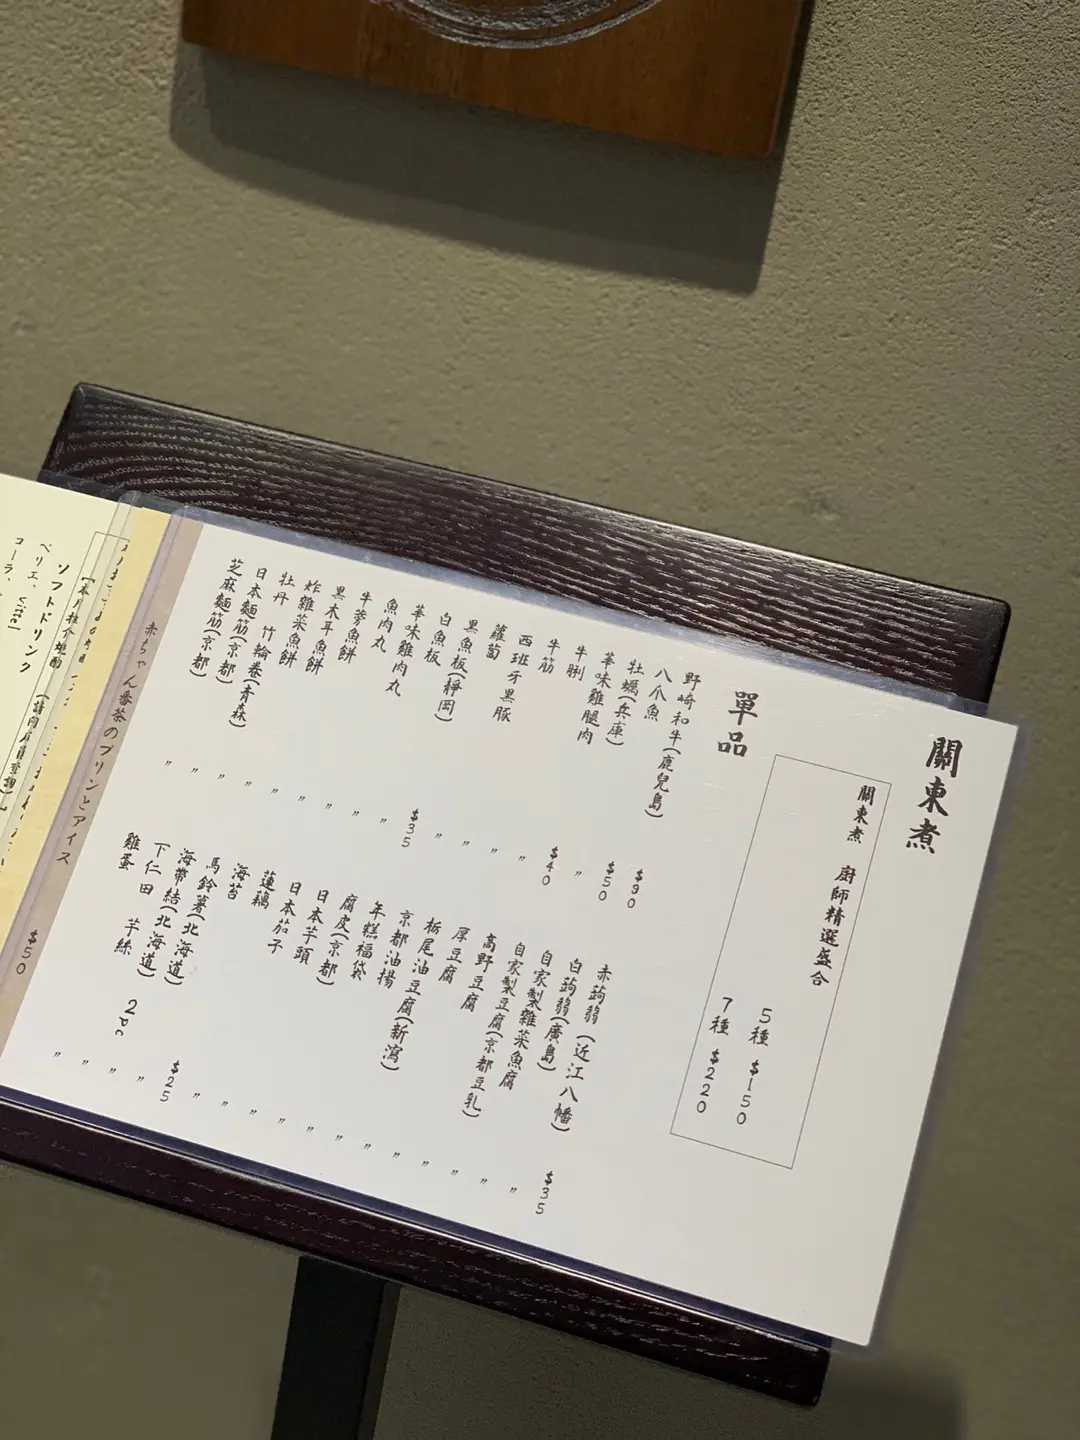 關東煮
關東煮 廚師精選盛合
5種 $150
7種 $220
單品
野崎和牛(鹿兒島) $90
八爪魚 $50
牡蠣(兵庫) 〃
華味雞腿肉 $40
牛脷 〃
牛筋 〃
西班牙黑豚 〃
蘿蔔 〃
黑魚板(靜岡) $35
白魚板 〃
華味雞肉丸 〃
魚肉丸 〃
牛蒡魚餅 〃
黑木耳魚餅 〃
炸雜菜魚餅 〃
牡丹 竹輪卷(青森) 〃
日本麵筋(京都) 〃
芝麻麵筋(京都) 〃
赤蒟蒻(近江八幡) $35
白蒟蒻(廣島) 〃
自家製雜菜魚腐 〃
自家製豆腐(京都豆乳) 〃
高野豆腐 〃
厚豆腐 〃
栃尾油豆腐(新瀉) 〃
京都油揚 〃
年糕福袋 〃
腐皮(京都) 〃
日本芋頭 〃
日本茄子 〃
蓮藕 〃
海苔 〃
馬鈴薯(北海道) $25
海帶結(北海道) 〃
下仁田 芋絲 〃
雞蛋 2pc 〃
赤ちゃん番茶のプリンとアイス $50
ソフトドリンク
ペリエ、vittel
コーラ、